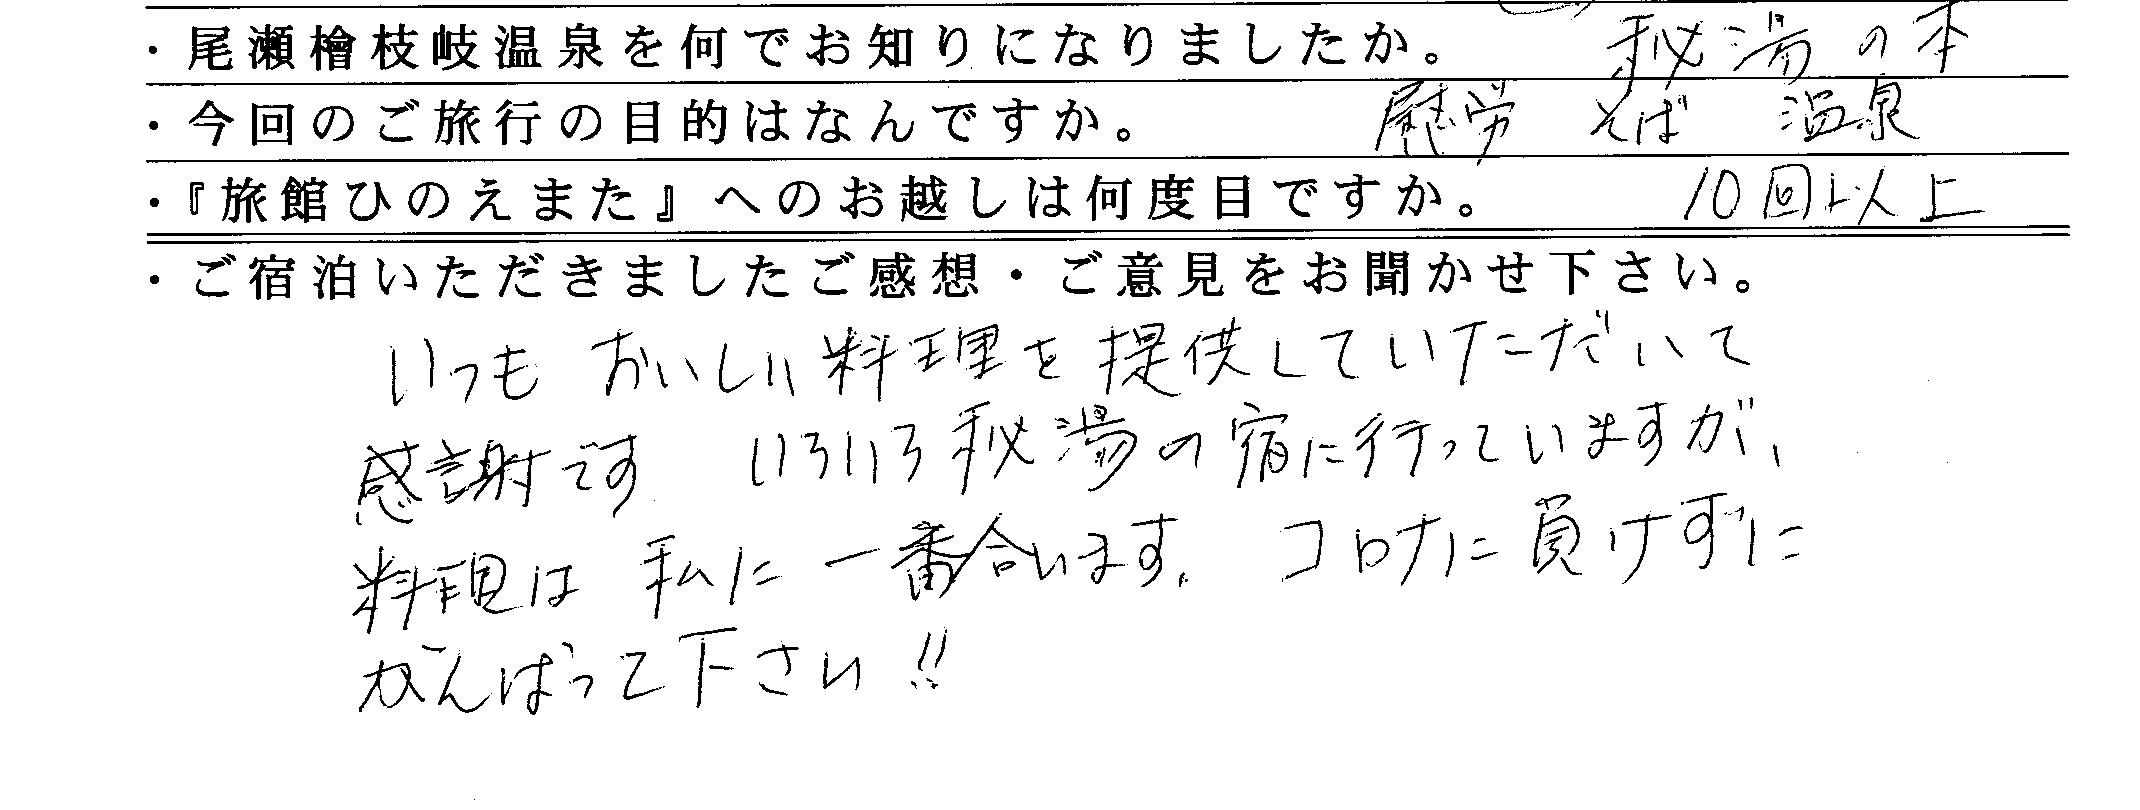 ・尾瀬檜枝岐温泉を何でお知りになりましたか。 秘湯の本
・今回のご旅行の目的はなんですか。 慰労 そば 温泉
・『旅館ひのえまた』へのお越しは何度目ですか。 10回以上
・ご宿泊いただきましたご感想・ご意見をお聞かせ下さい。
いつも おいしい料理を提供していただいて
感謝です いろいろ秘湯の宿に行っていますが、
料理は 私に一番合います。 コロナに負けずに
がんばって下さい!!